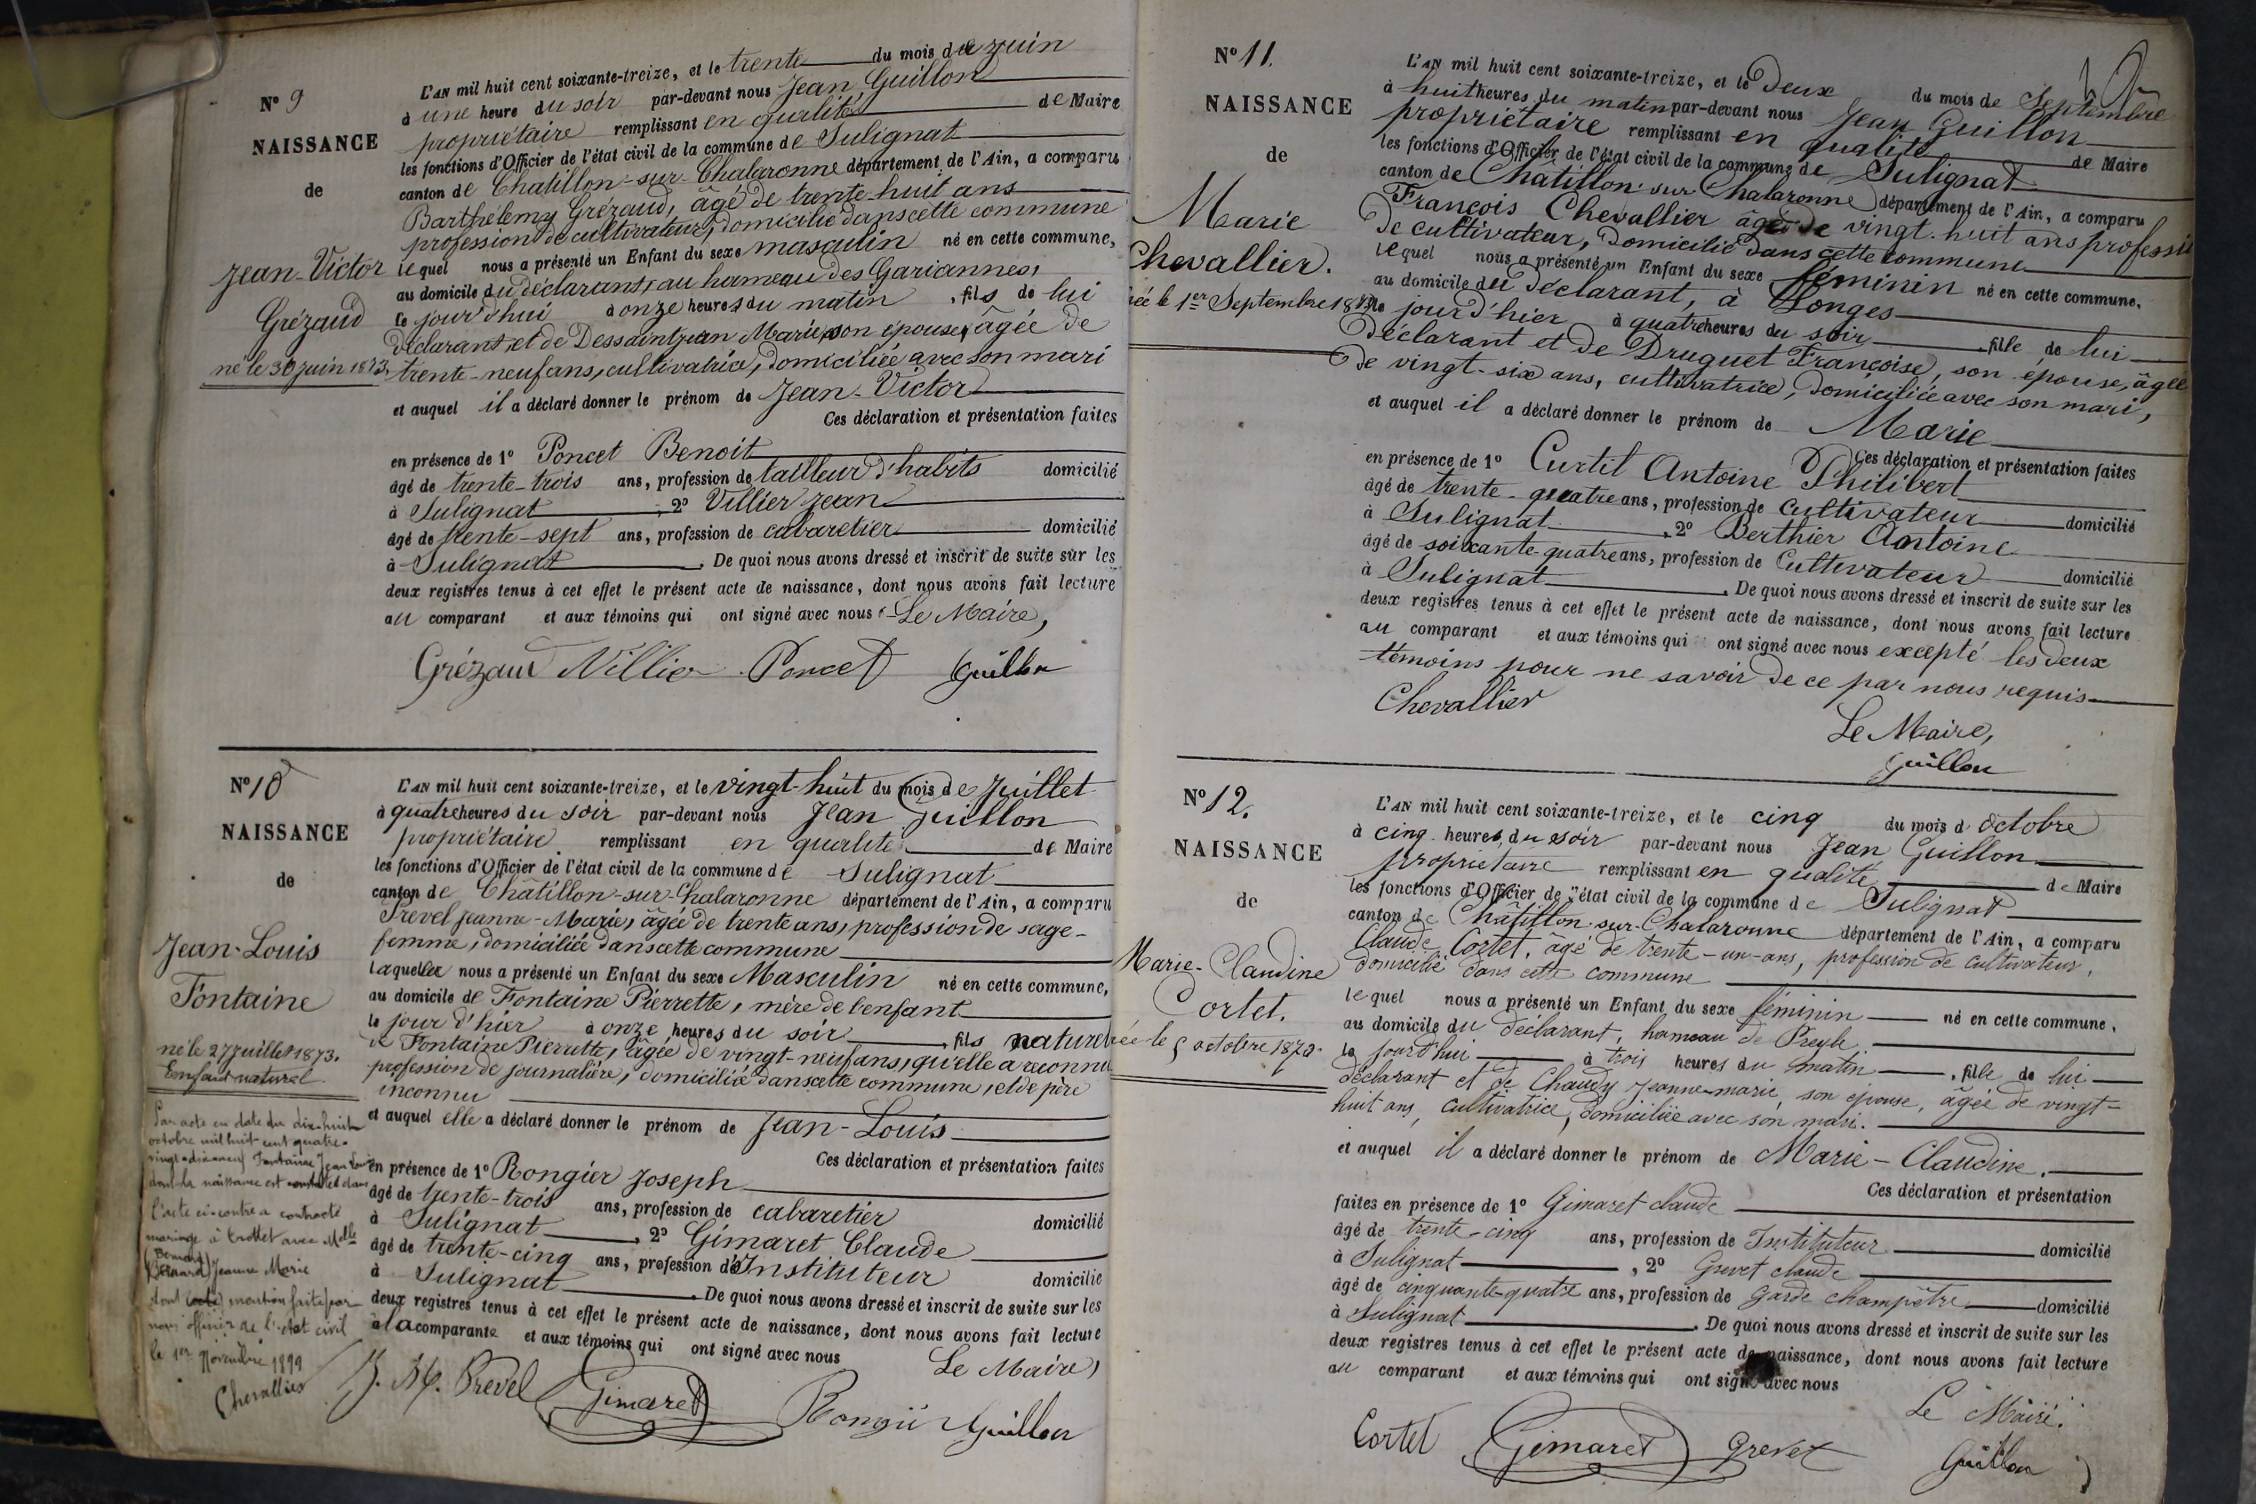 N° 9
NAISSANCE
de
Jean-Victor
Grézaud
né le 30 juin 1873.
L'AN mil huit cent soixante-treize, et le trente du mois de juin
à une heure du soir par-devant nous Jean Guillon
propriétaire remplissant en qualité de Maire
les fonctions d'Officier de l'état civil de la commune de Sulignat
canton de Chatillon-sur-Chalaronne département de l'Ain, a comparu
Barthélemy Grézaud, âgé de trente-huit ans
profession de cultivateur, domicilié dans cette commune
lequel nous a présenté un Enfant du sexe masculin né en cette commune,
au domicile du déclarant, au hameau des Gariannes,
le jour d'hui à onze heures du matin, fils de lui
déclarant et de Dessaintjean Marie, son épouse, âgée de
trente-neuf ans, cultivatrice, domiciliée avec son mari
et auquel il a déclaré donner le prénom de Jean-Victor
Ces déclaration et présentation faites
en présence de 1° Poncet Benoit
âgé de trente-trois ans, profession de tailleur d'habits domicilié
à Sulignat, 2° Villier Jean
âgé de trente-sept ans, profession de cabaretier domicilié
à Sulignat. De quoi nous avons dressé et inscrit de suite sur les
deux registres tenus à cet effet le présent acte de naissance, dont nous avons fait lecture
au comparant et aux témoins qui ont signé avec nous. Le Maire,
Grézaud Villier Poncet Guillon
N° 10
NAISSANCE
de
Jean-Louis
Fontaine
né le 27 juillet 1873.
Enfant naturel.
Par acte en date du dix-huit
octobre mil huit cent quatre-
vingt-dix-neuf Fontaine Jean Louis
dont la naissance est constatée dans
l'acte ci-contre a contracté
mariage à avec Melle
Jeanne Marie
dont mention faite par
nous officier de l'état civil
le 1er Novembre 1899
Chevallier
L'AN mil huit cent soixante-treize, et le vingt-huit du mois de juillet
à quatre heures du soir par-devant nous Jean Guillon
propriétaire remplissant en qualité de Maire
les fonctions d'Officier de l'état civil de la commune de Sulignat
canton de Châtillon-sur-Chalaronne département de l'Ain, a comparu
Prevel Jeanne-Marie, âgée de trente ans, profession de sage-
femme, domiciliée dans cette commune
laquelle nous a présenté un Enfant du sexe Masculin né en cette commune,
au domicile de Fontaine Pierrette, mère de l'enfant
le jour d'hier à onze heures du soir, fils naturel
de Fontaine Pierrette, âgée de vingt-neuf ans, qu'elle a reconnu
profession de journalière, domiciliée dans cette commune, et de père
inconnu
et auquel elle a déclaré donner le prénom de Jean-Louis
Ces déclaration et présentation faites
en présence de 1° Rongier Joseph
âgé de trente-trois ans, profession de cabaretier domicilié
à Sulignat, 2° Gimaret Claude
âgé de trente-cinq ans, profession d'Instituteur domicilié
à Sulignat. De quoi nous avons dressé et inscrit de suite sur les
deux registres tenus à cet effet le présent acte de naissance, dont nous avons fait lecture
à la comparante et aux témoins qui ont signé avec nous Le Maire,
J. M. Prevel Gimaret Guillon
N° 11.
NAISSANCE
de
Marie
Chevallier.
née le 1er Septembre
L'AN mil huit cent soixante-treize, et le Deux du mois de Septembre
à huit heures du matin par-devant nous Jean Guillon
propriétaire remplissant en qualité de Maire
les fonctions d'Officier de l'état civil de la commune de Sulignat
canton de Châtillon-sur-Chalaronne département de l'Ain, a comparu
François Chevallier âgé de vingt-huit ans profession
de cultivateur, domicilié dans cette commune
lequel nous a présenté un Enfant du sexe féminin né en cette commune.
au domicile du déclarant, à Longes
le jour d'hier à quatre heures du soir, fille de lui
déclarant et de Druguet Françoise, son épouse, âgée
de vingt-six ans, cultivatrice, domiciliée avec son mari,
et auquel il a déclaré donner le prénom de Marie
Ces déclaration et présentation faites
en présence de 1° Curtil Antoine Philibert
âgé de trente-quatre ans, profession de cultivateur domicilié
à Sulignat, 2° Berthier Antoine
âgé de soixante-quatre ans, profession de Cultivateur domicilié
à Sulignat. De quoi nous avons dressé et inscrit de suite sur les
deux registres tenus à cet effet le présent acte de naissance, dont nous avons fait lecture
au comparant et aux témoins qui ont signé avec nous excepté les deux
témoins pour ne savoir de ce par nous requis
Chevallier
Le Maire,
Guillon
N° 12.
NAISSANCE
de
Marie-Claudine
Cortet.
née le 5 octobre
L'AN mil huit cent soixante-treize, et le cinq du mois d'octobre
à cinq heures du soir par-devant nous Jean Guillon
propriétaire remplissant en qualité de Maire
les fonctions d'Officier de l'état civil de la commune de Sulignat
canton de Châtillon-sur-Chalaronne département de l'Ain, a comparu
Claude Cortet, âgé de trente-un-ans, profession de cultivateur,
domicilié dans cette commune
lequel nous a présenté un Enfant du sexe féminin né en cette commune,
au domicile du déclarant, hameau de
le jourd'hui à trois heures du matin, fille de lui
déclarant et de Chaudy Jeanne-marie, son épouse, âgée de vingt-
huit ans, cultivatrice, domiciliée avec son mari.
et auquel il a déclaré donner le prénom de Marie-Claudine.
Ces déclaration et présentation
faites en présence de 1° Gimaret claude
âgé de trente-cinq ans, profession de Instituteur domicilié
à Sulignat, 2° Grevet claude
âgé de cinquante-quatre ans, profession de garde champêtre domicilié
à Sulignat. De quoi nous avons dressé et inscrit de suite sur les
deux registres tenus à cet effet le présent acte de naissance, dont nous avons fait lecture
au comparant et aux témoins qui ont signé avec nous
Le Maire.
Cortet Gimaret Grevet Guillon